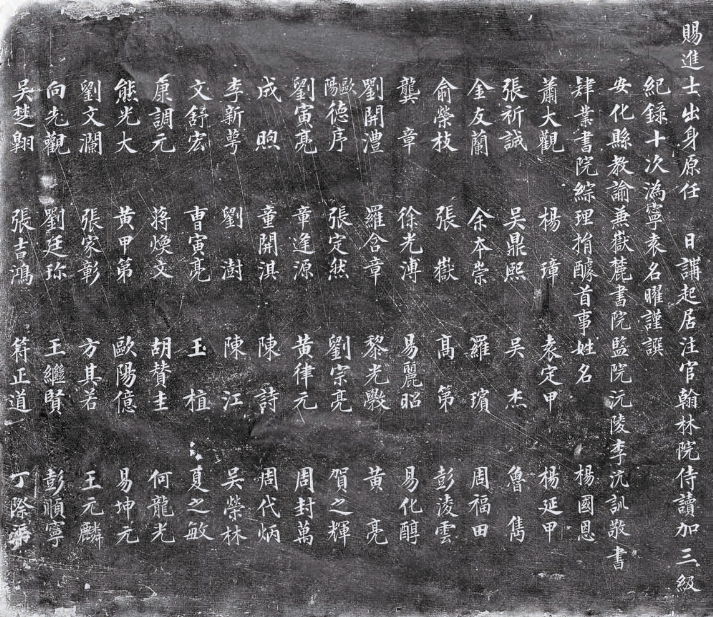 賜進士出身原任　日講起居注官翰林院侍讀加三級
紀錄十次溈寧袁名曜謹譔
安化縣教諭兼嶽麓書院監院沅陵李沆訓敬書
肄業書院綜理捐醵首事姓名　楊國恩
蕭大觀　楊璋　袁定甲　楊延甲
張祈誠　吳鼎熙　吳杰　魯雋
金友蘭　余本崇　羅璸　周福田
俞榮枝　張嶽　高第　彭淩雲
龔章　徐光溥　易麗昭　易化醇
劉開澧　羅含章　黎光斆　黃亮
歐陽德序　張定然　劉宗亮　賀之輝
劉寅亮　章逢源　黃律元　周封萬
成煦　童開淇　陳詩　周代炳
李新萼　劉澍　陳江　吳榮林
文餘宏　曹寅亮　玉植　夏之敏
康調元　蔣煥文　胡贊圭　何龍光
熊光大　黃甲第　歐陽億　易坤元
劉文瀾　張家彰　方其若　王元麟
向光觀　劉廷珍　王繼賢　彭順寧
吳楚翺　張吉鴻　符正道　丁際